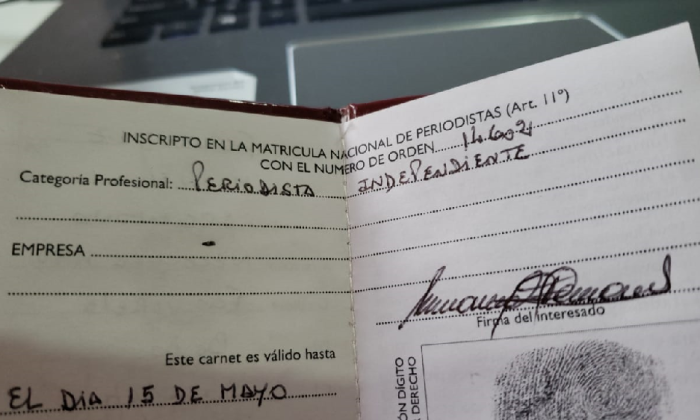 INSCRIPTO EN LA MATRICULA NACIONAL DE PERIODISTAS (Art. 11º)
CON EL NUMERO DE ORDEN
Categoría Profesional: PERIODISTA INDEPENDIENTE
EMPRESA -
Firma del interesado
Este carnet es válido hasta
EL DIA 15 DE MAYO
ÓN DÍGITO
DERECHO